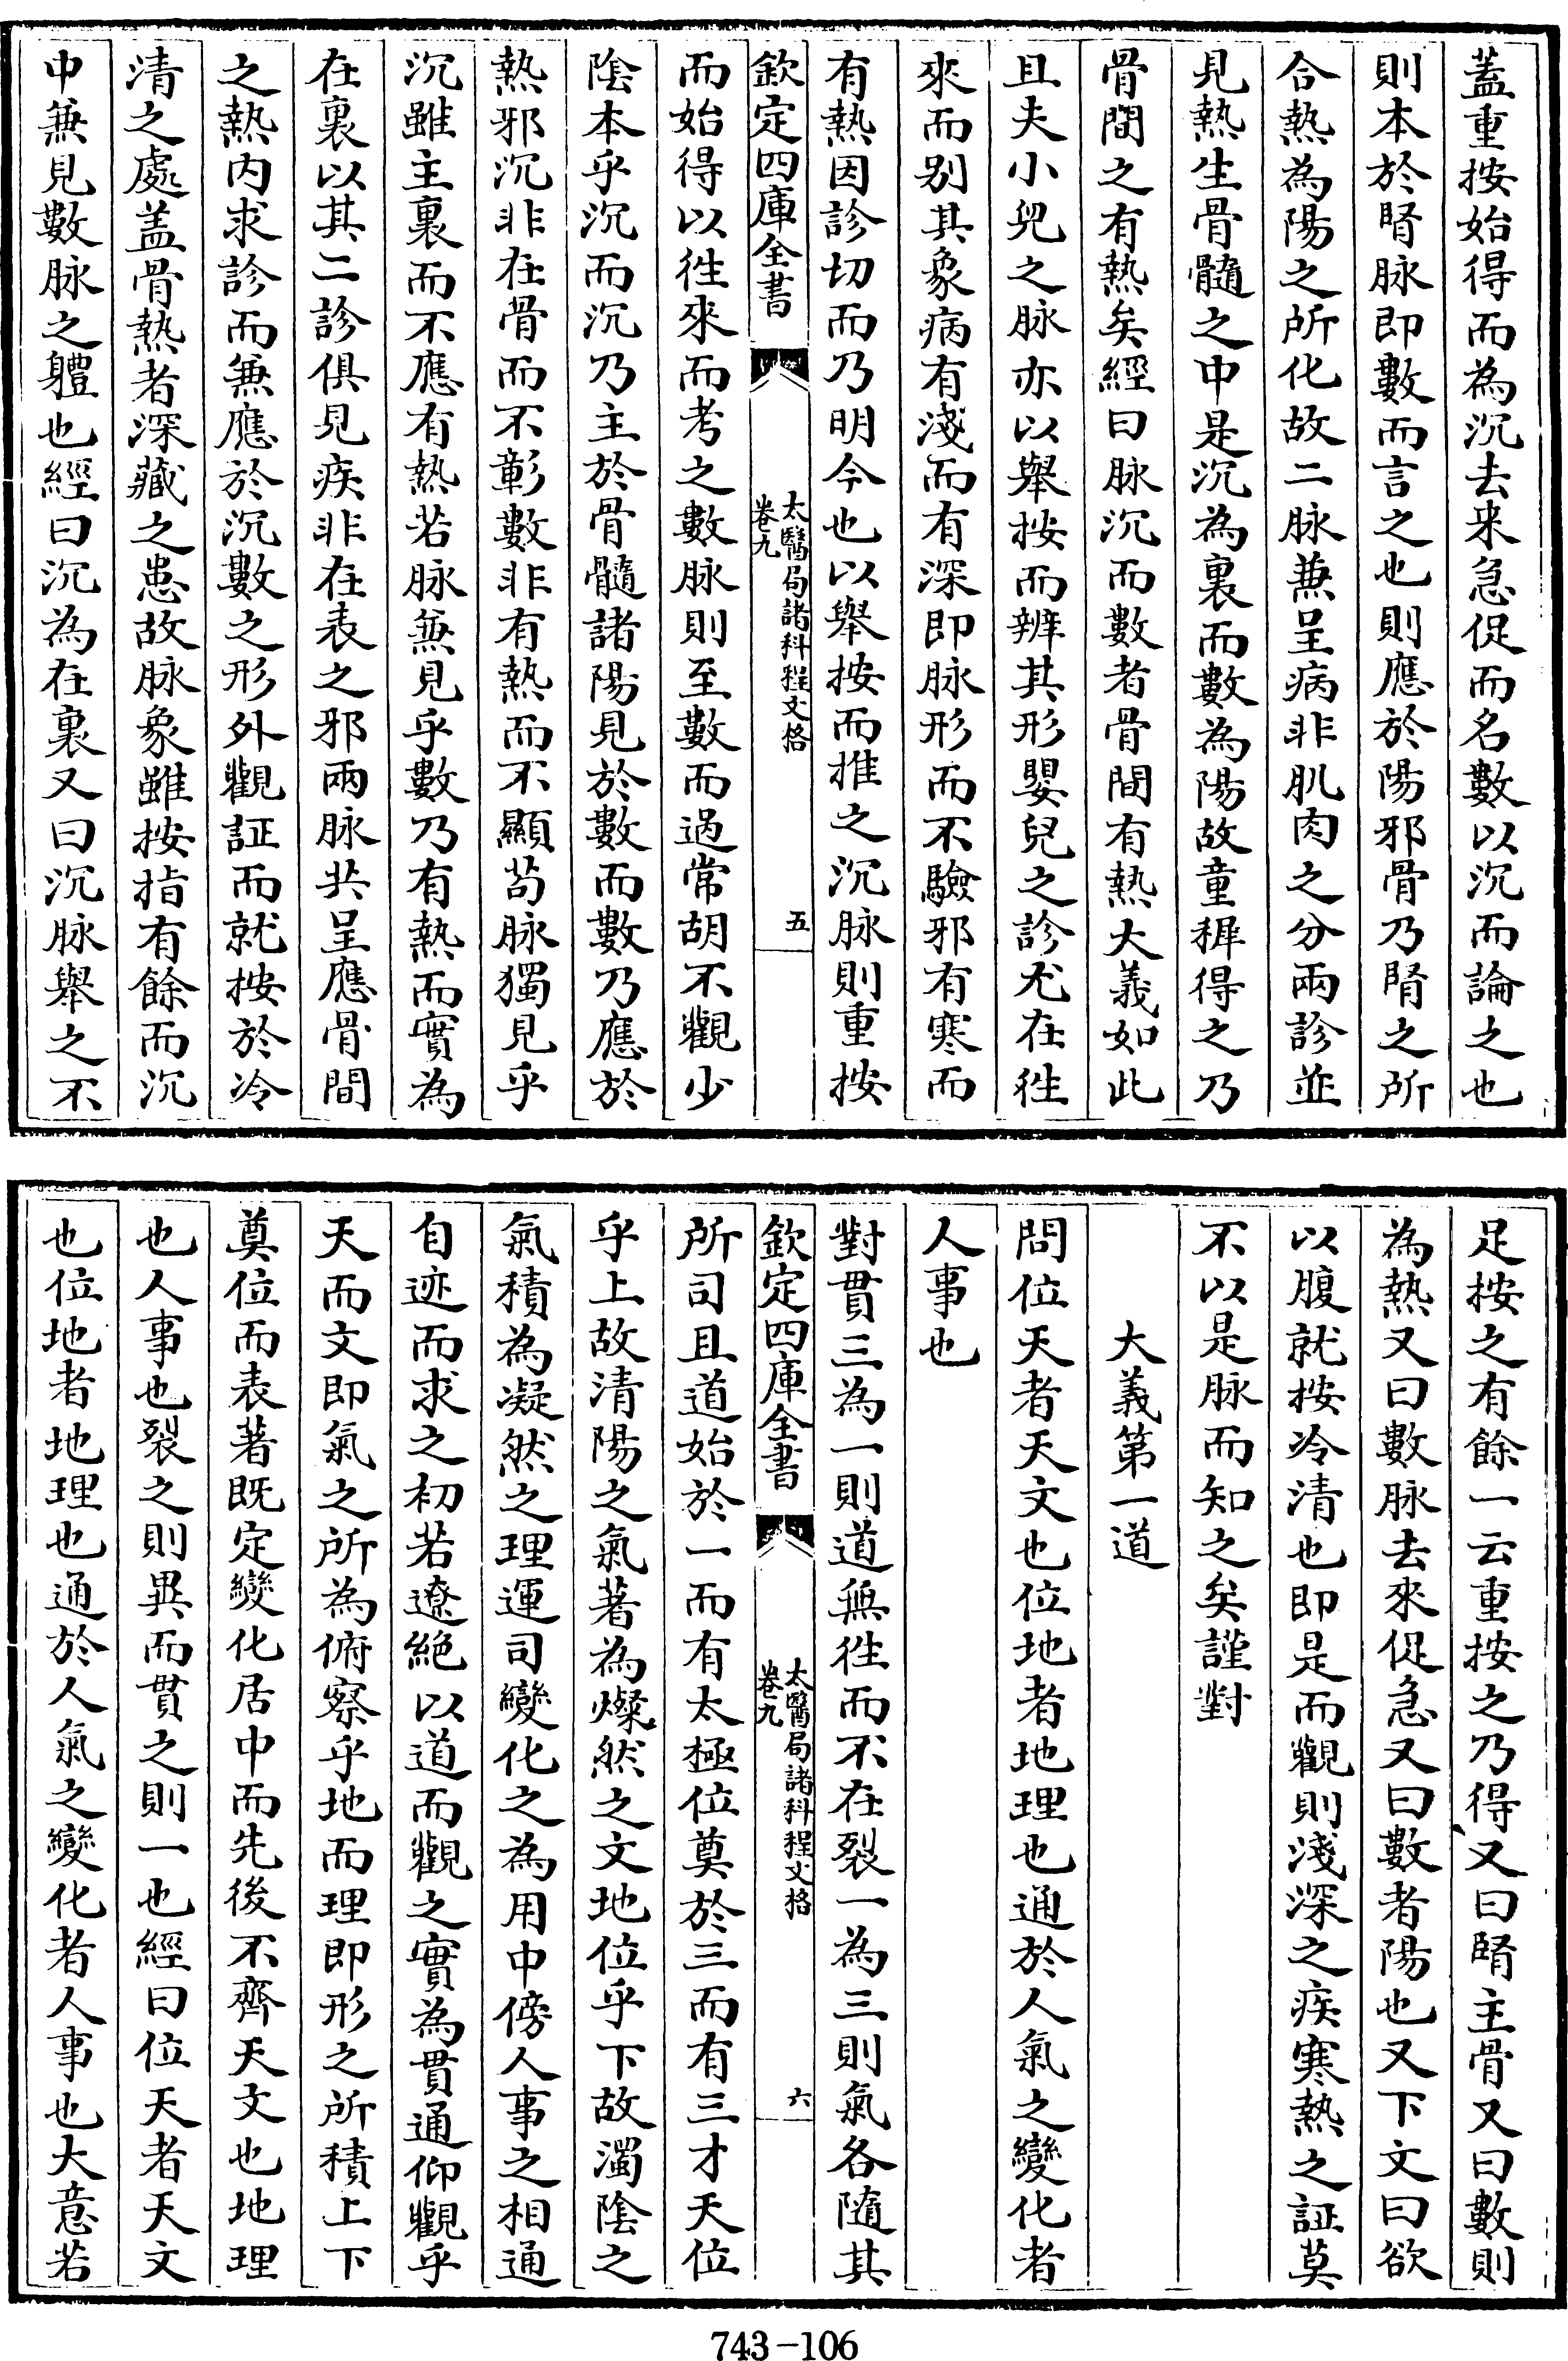 蓋重按始得而為沉去来急促而名數以沉而論之也
則本於腎脉即數而言之也則應於陽邪骨乃腎之所
合熱為陽之所化故二脉兼呈病非肌肉之分兩診並
見熱生骨髓之中是沉為裏而數為陽故童穉得之乃
骨間之有熱矣經曰脉沉而數者骨間有熱大義如此
且夫小兒之脉亦以舉按而辨其形嬰兒之診尤在徃
來而别其象病有淺而有深即脉形而不驗邪有寒而
有熱因診切而乃明今也以舉按而推之沉脉則重按
欽定四庫全書
太醫局諸科程文格
卷九
五
而始得以徃來而考之數脉則至數而過常胡不觀少
陰本乎沉而沉乃主於骨髓諸陽見於數而數乃應於
熱邪沉非在骨而不彰數非有熱而不顯茍脉獨見乎
沉雖主裏而不應有熱若脉兼見乎數乃有熱而實為
在裏以其二診俱見疾非在表之邪兩脉共呈應骨間
之熱内求診而兼應於沉數之形外觀証而就按於冷
清之處盖骨熱者深藏之患故脉象雖按指有餘而沉
中兼見數脉之軆也經曰沉為在裏又曰沉脉舉之不
足按之有餘一云重按之乃得又曰腎主骨又曰數則
為熱又曰數脉去來促急又曰數者陽也又下文曰欲
以腹就按冷清也即是而觀則淺深之疾寒熱之証莫
不以是脉而知之矣謹對
大義第一道
問位天者天文也位地者地理也通於人氣之變化者
人事也
對貫三為一則道無徃而不在裂一為三則氣各隨其
欽定四庫全書
太醫局諸科程文格
卷九
六
所司且道始於一而有太極位奠於三而有三才天位
乎上故清陽之氣著為燦然之文地位乎下故濁陰之
氣積為凝然之理運司變化之為用中傍人事之相通
自迹而求之初若遼絶以道而觀之實為貫通仰觀乎
天而文即氣之所為俯察乎地而理即形之所積上下
奠位而表著既定變化居中而先後不齊天文也地理
也人事也裂之則異而貫之則一也經曰位天者天文
也位地者地理也通於人氣之變化者人事也大意若
743-106